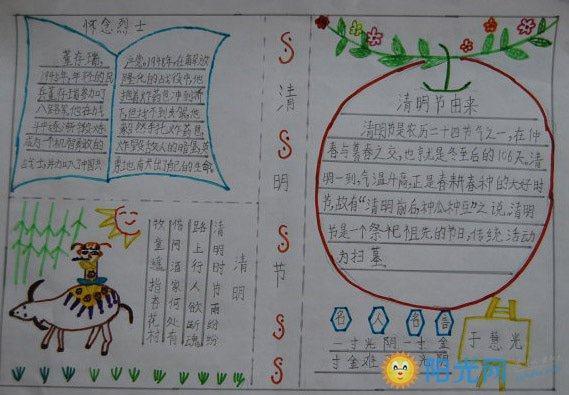 怀念烈士
董存瑞,
1945年,年轻的民
兵董存瑞参加了
八路军,他在战
斗中逐渐锻炼
成为一个机智勇敢的
战士,并加入了中国共
产党。1948年,在解放
隆化的战役中,他
抱着炸药包冲到桥
下,但找不到支点,他
毅然手托炸药包,
炸毁敌人的暗堡,英
勇地献出了自己的生命。
清明节
清明
清明时节雨纷纷
路上行人欲断魂
借问酒家何处有
牧童遥指杏花村
清明节由来
清明节是农历二十四节气之一,在仲
春与暮春之交,也就是冬至后的106天,清
明一到,气温升高,正是春耕春种的大好时
节,故有“清明前后种瓜种豆”之说.清明
节是一个祭祀祖先的节日,传统活动
为扫墓
名人名言
一寸光阴一寸金
寸金难 光阴
于慧光
阳光网